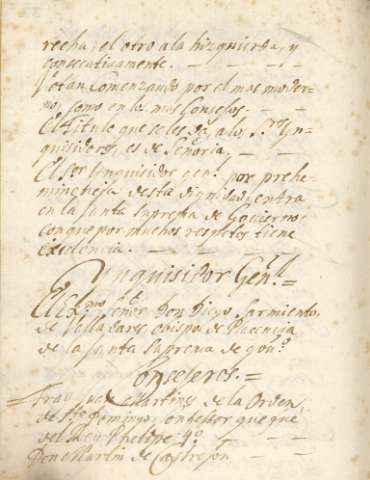 recha, el otro ala hizquierda, y
consecutivamente.
Votan Comenzando por el mas moder-
no, como en los mas Consejos.
El titulo que seles da, a los Sres Yn-
quisidores, es de Señoria,
El Sor Ynquisidor genl por prehe-
minencia desta dignidad, entra
en la Junta Suprema de Govierno
con que por muchos respetos tiene
excelencia.
Ynquisidor Genll =
El Exmo Señor Don Diego Sarmiento,
de Valladares obispo de
de la Junta Suprema de gouo
Consejeros. =
Fray Juo Martines de la Orden,
de Sto Domingo, confessor que fue
del Rey Phelipe 4o
Don Martin de Castrejon